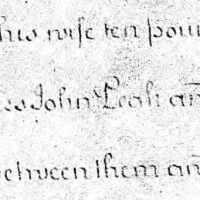 his wife ten pou
John Leah an
between them an